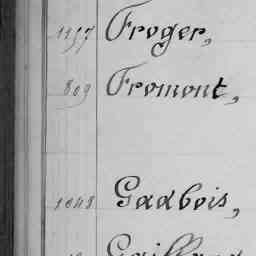 1197 Froger,
809 Fromont,
1048 Gadbois,
Gaillard